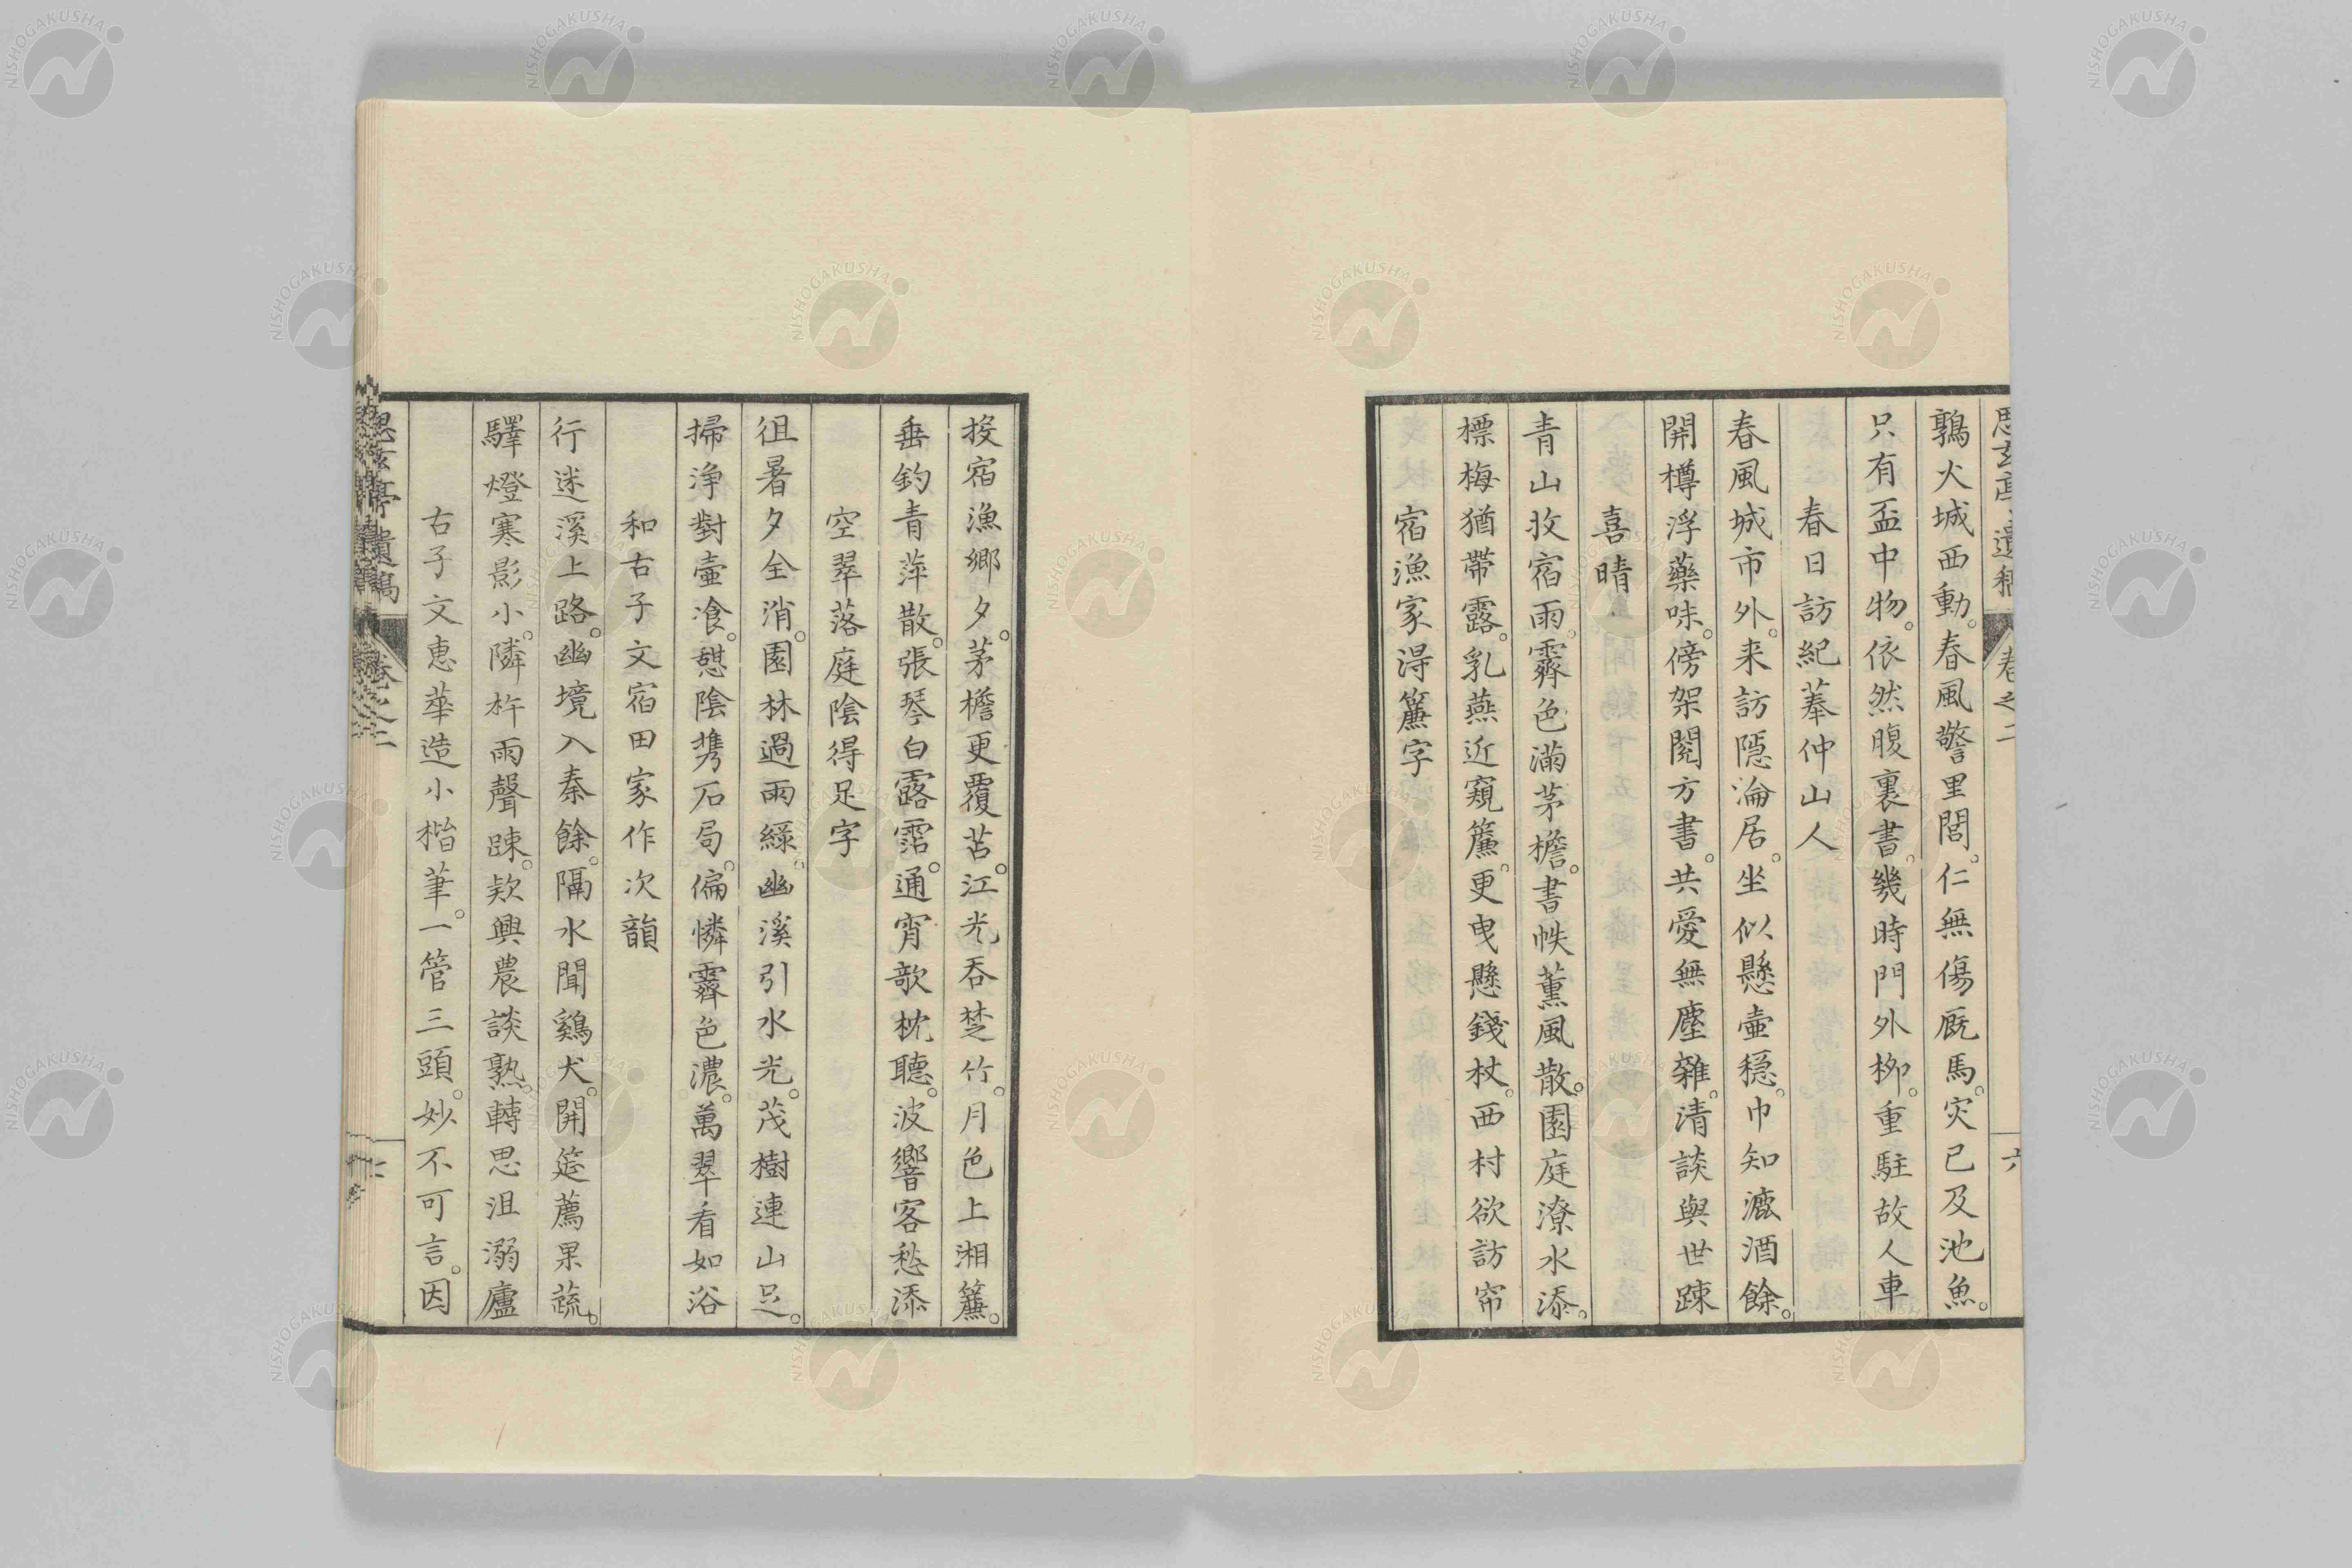 思玄亭遺稿 卷之二 六
鶉火城西動。春風警里閭。仁無傷厩馬。灾已及池魚。
只有盃中物。依然腹裏書。幾時門外柳。重駐故人車
春日訪紀菶仲山人
春風城市外。来訪隱淪居。坐似懸壷穏。巾知漉酒餘。
開樽浮藥味。傍架閱方書。共愛無塵雜。清談與世踈
喜晴
青山收宿雨。霽色滿茅檐。書帙薫風散。園庭潦水添。
標梅猶帶露。乳燕近窺簾。更曳懸錢杖。西村欲訪帘
宿漁家得簾字
投宿漁鄉夕。茅檐更覆苫。江光吞楚竹。月色上湘簾。
垂釣青萍散。張琴白露霑。通宵歌枕聽。波響客愁添
空翠落庭陰得足字
徂暑夕全消。園林過雨綠。幽溪引水光。茂樹連山足。
掃浄對壷飡。憇陰携石局。偏憐霽色濃。萬翠看如浴
和古子文宿田家作次韻
行迷溪上路。幽境入秦餘。隔水聞鷄犬。開筵薦果蔬。
驛燈寒影小。隣杵雨聲踈。欵興農談熟。轉思沮溺廬
古子文惠華造小楷筆。一管三頭。妙不可言。因
思玄亭遺稿 卷之二
NISHOGAKUSHA